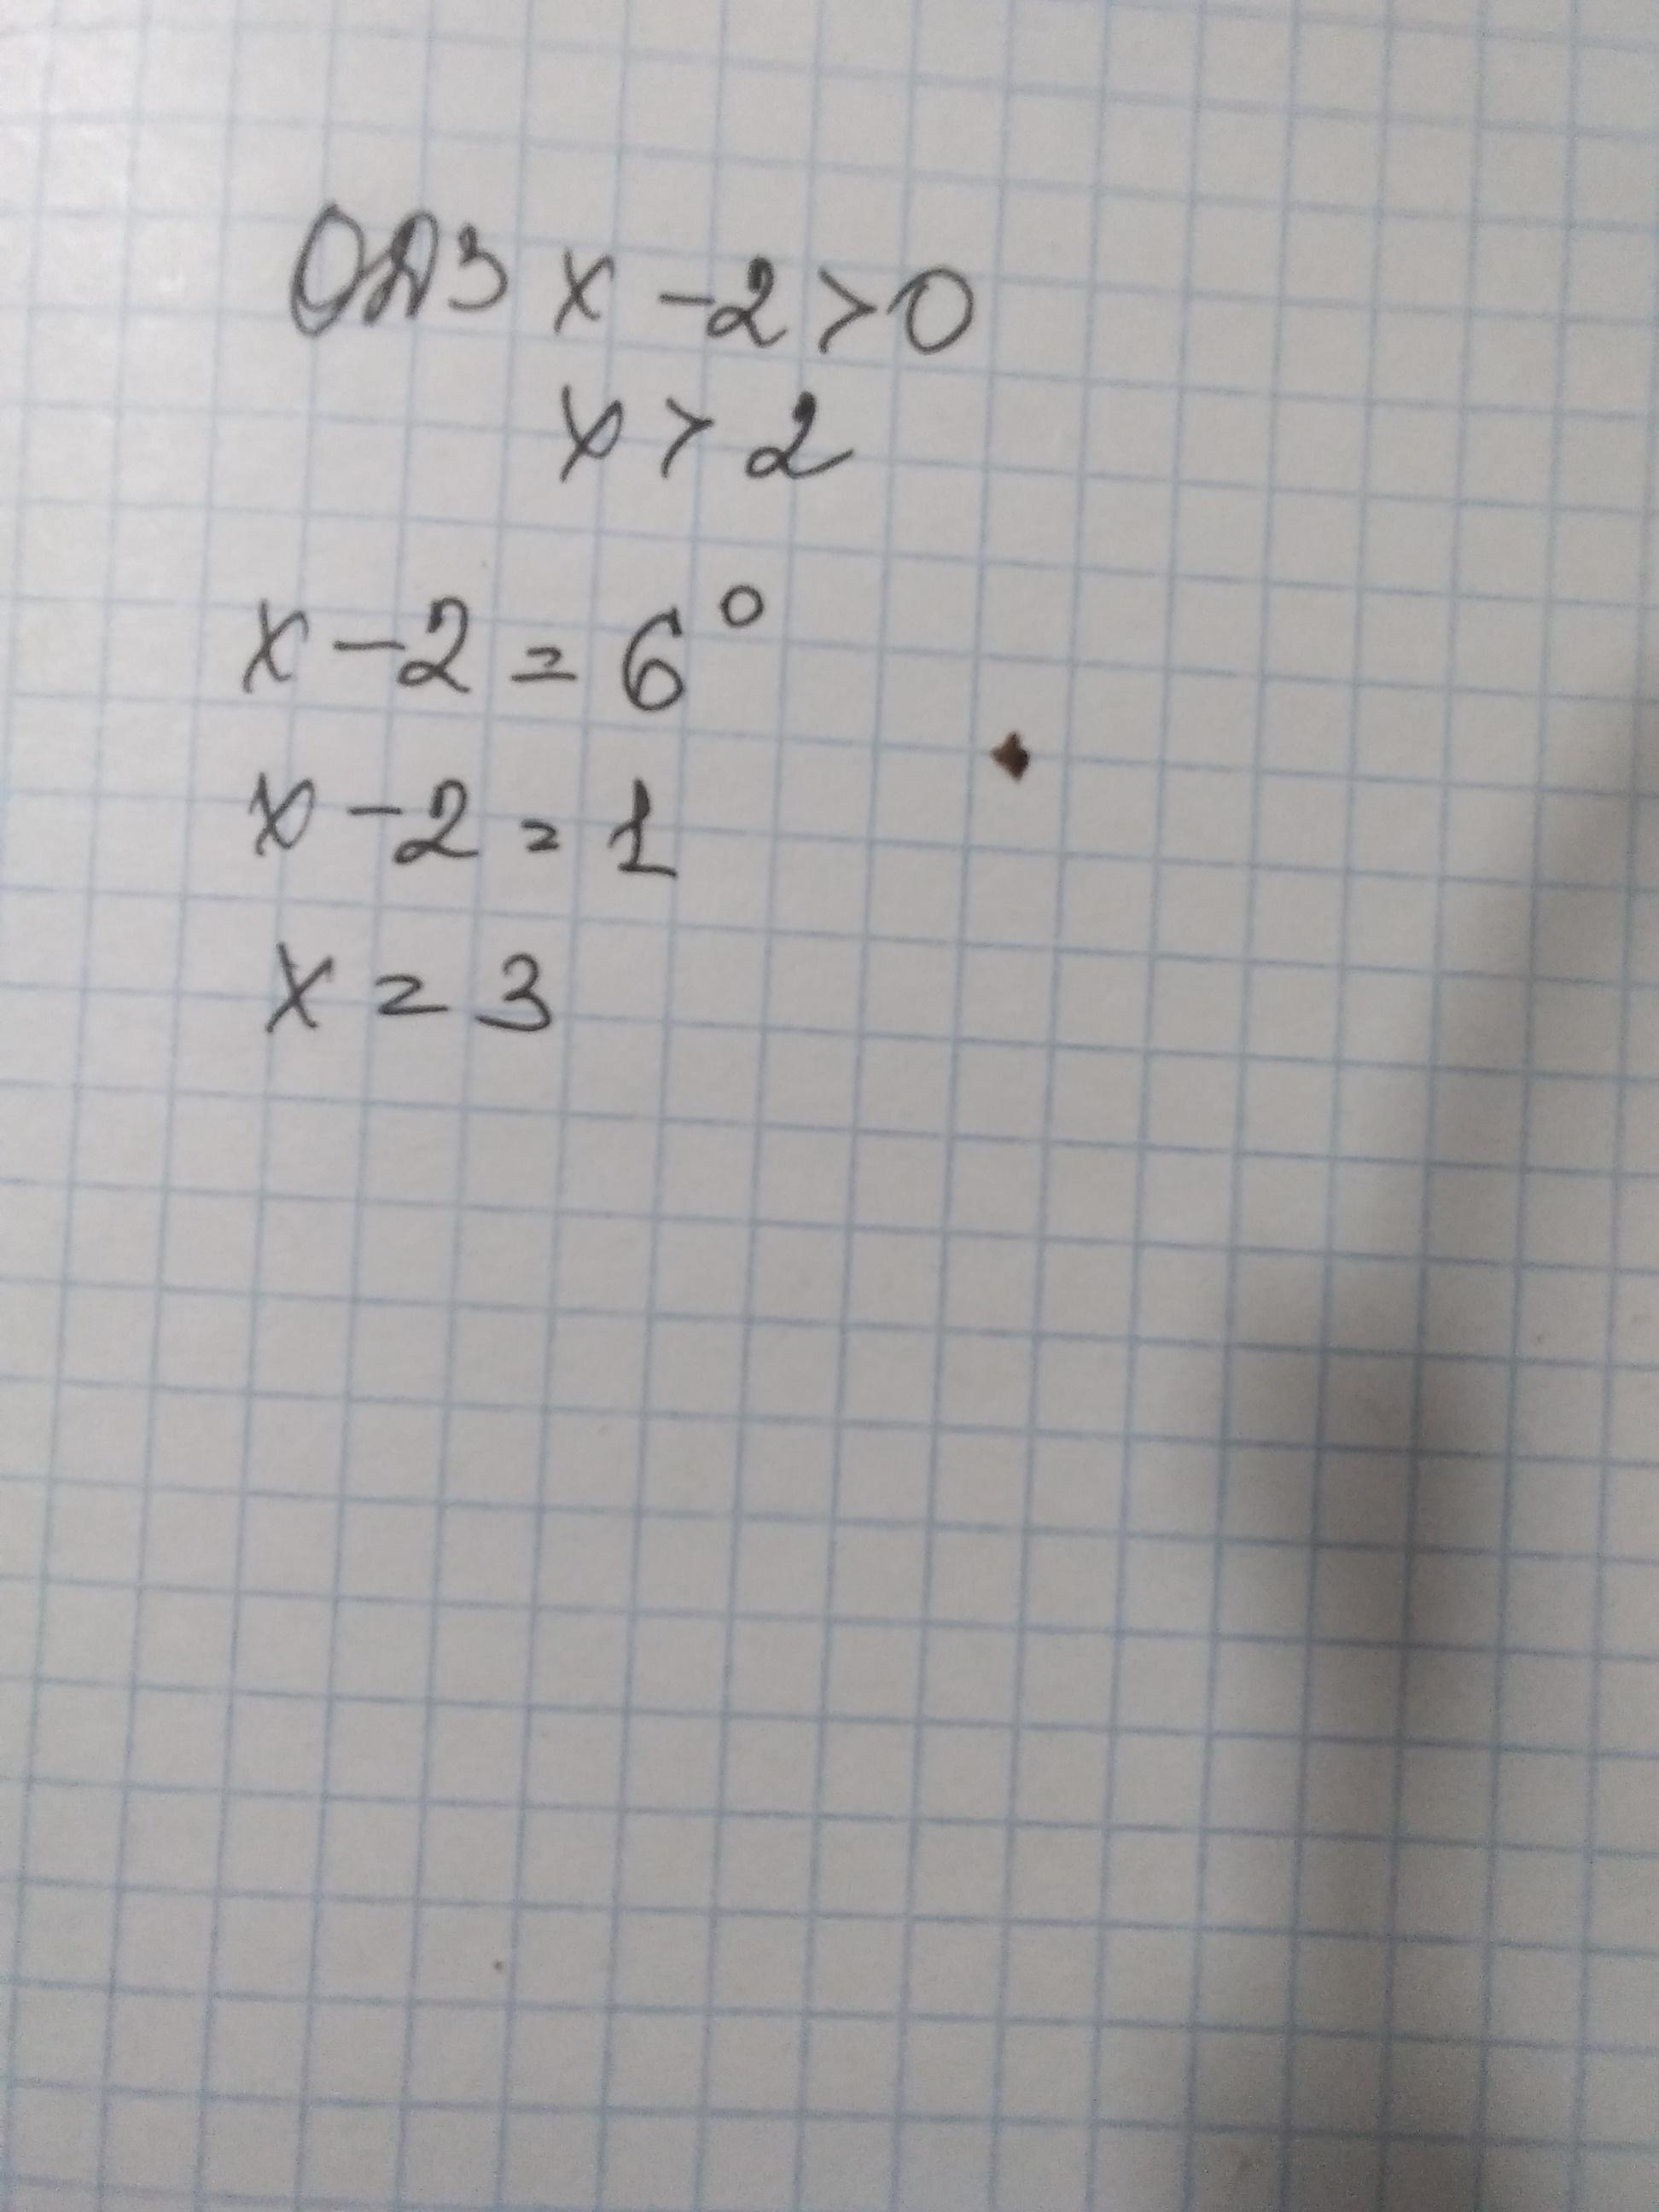 ОДЗ x - 2 > 0
x > 2
x - 2 = 6⁰
x - 2 = 1
x = 3